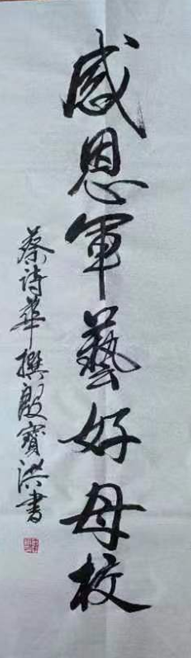 感恩軍藝好母校
蔡诗華撰殷寶洪書